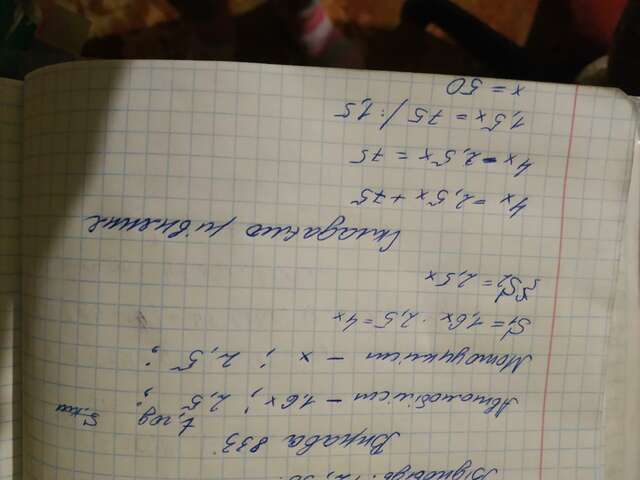 Відповідь: 12,
Вправа 833
t, год S, км
Автомобіліст – 1,6x ; 2,5 ;
Мотоцикліст – x ; 2,5 ;
S₁ = 1,6x · 2,5 = 4x
S₂ = 2,5x
Складаємо рівняння
4x = 2,5x + 75
4x - 2,5x = 75
1,5x = 75 / : 1,5
x = 50